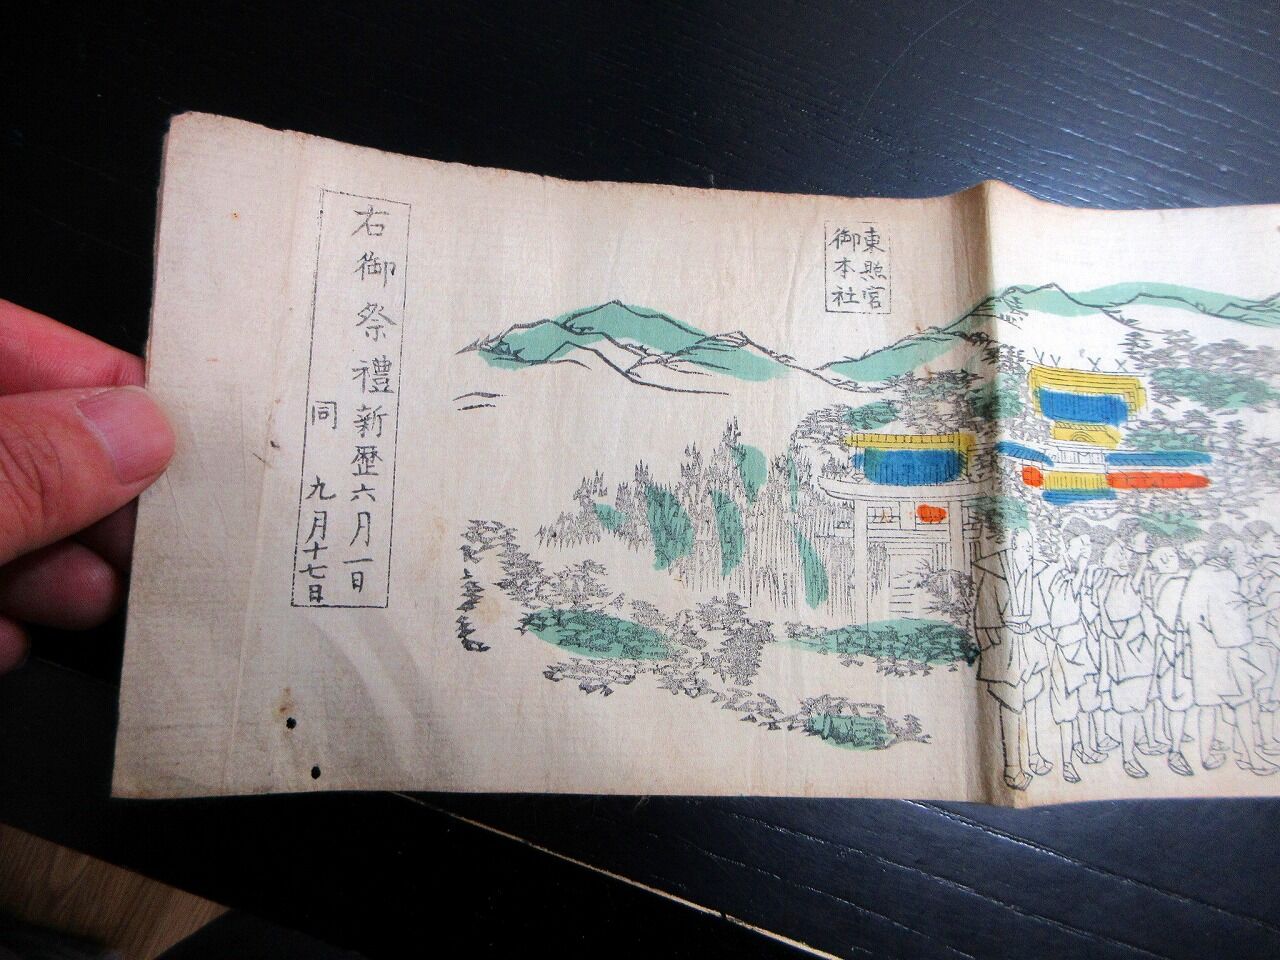 東照宮
御本社
右御祭禮新歴六月一日
同 九月十七日